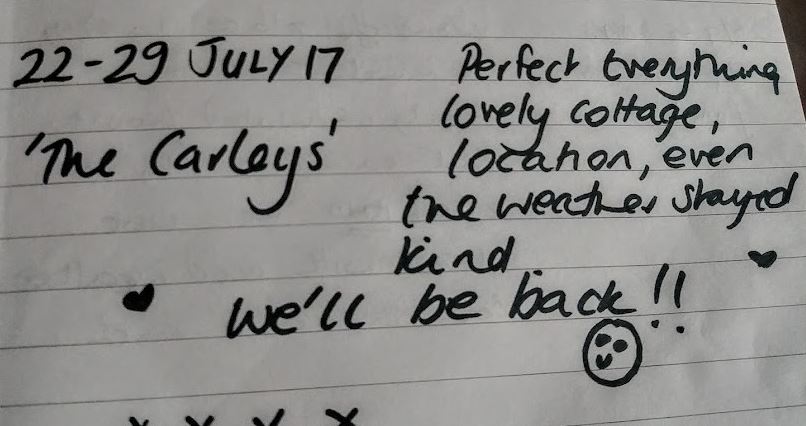 22-29 JULY 17
'The Carleys'
Perfect Everything
lovely cottage,
location, even
the weather stayed
kind
we'll be back!!
x x x x